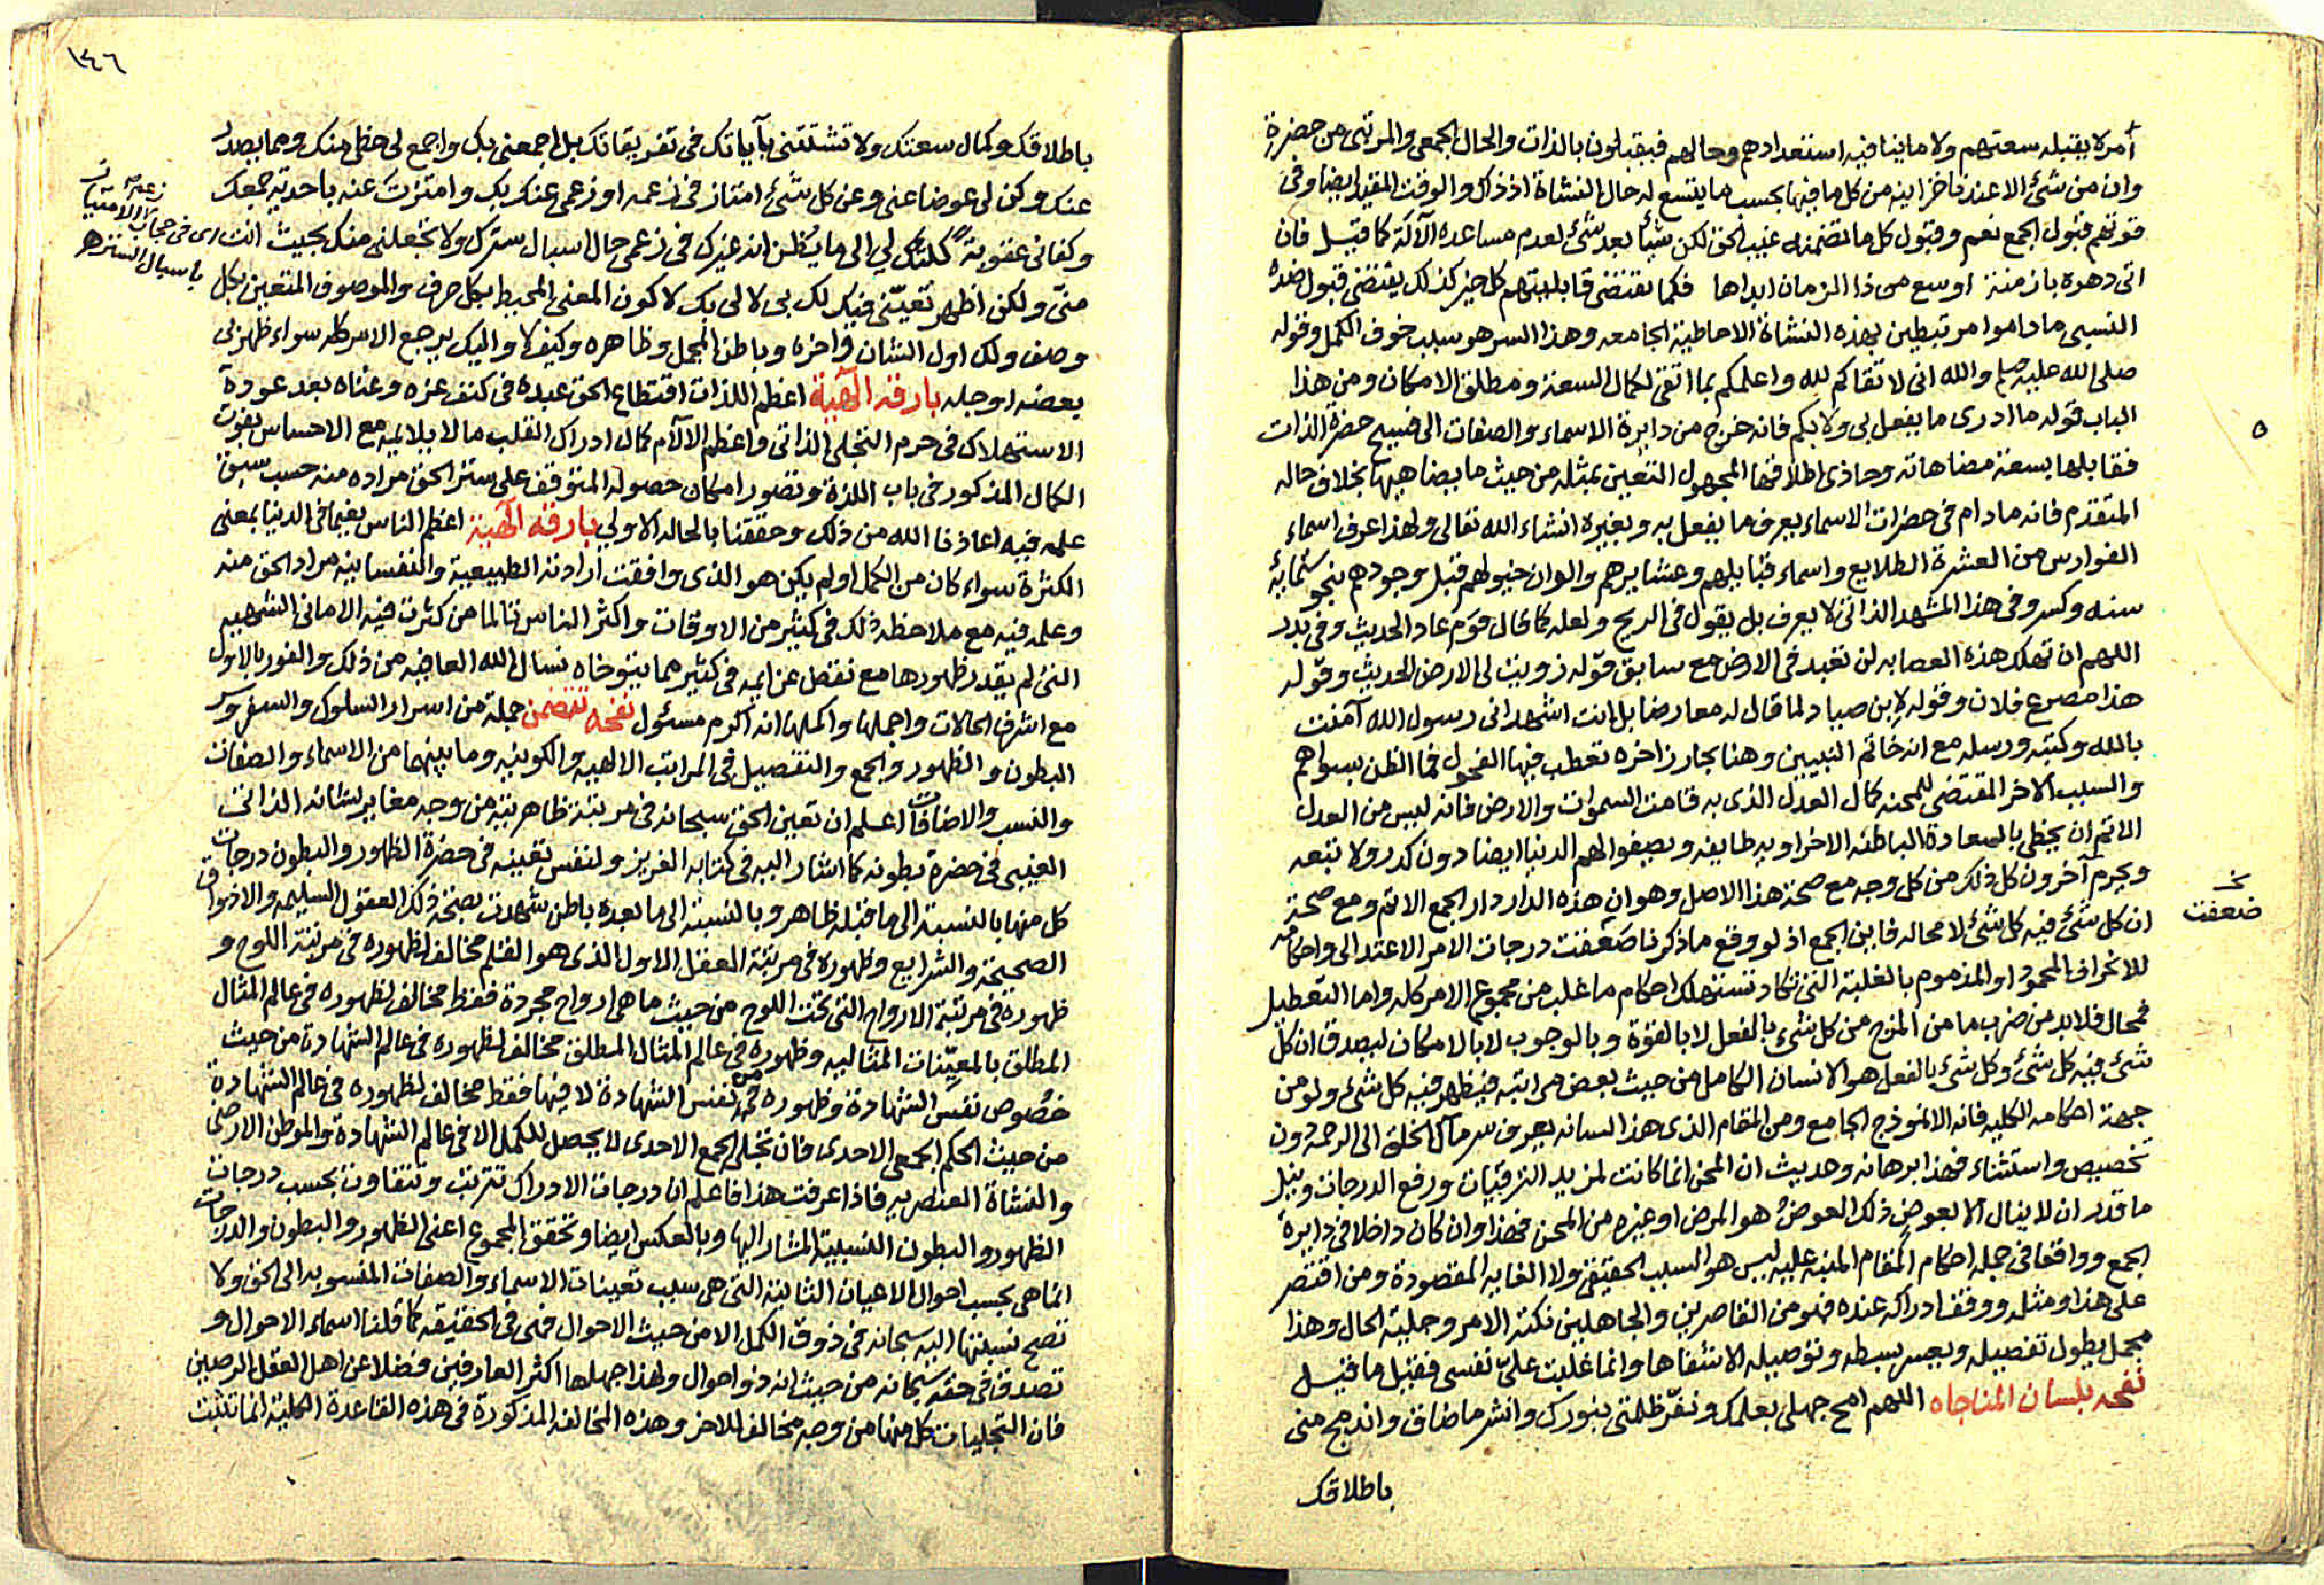 أمر لا يقبله سعتهم ولا ما ينافيه استعدادهم وحالهم فيقبلون بالذات والحال الجمعي والمرتبي من حضرة
وان من شئ الا عندنا خزاينه من كل ما فيها بحسب ما يتسع له حال النشاة اذ ذاك والوقت المقيد ايضا وفى
قوتهم قبول الجمع نعم وقبول كل ما تضمنه غيب الحق لكن شيأ بعد شئ لعدم مساعده الآلة كما قيل فان
اتى دهره بازمنة اوسع من ذا الزمان ابداها فكما تقتضى قابليتهم كل خير كذلك يقتضى قبول ضده
النسبى ماداموا مرتبطين بهذه النشاة الاحاطية الجامعه وهذا السر هو سبب خوف الكمل وقوله
صلى الله عليه وسلم والله انى لاتقاكم لله واعلمكم بما اتقى لكمال السعة ومطلق الامكان ومن هذا
الباب قوله ما ادرى ما يفعل بى ولا بكم فانه خرج من دايرة الاسماء والصفات الى فسيح حضرة الذات
فقابلها بسعة مضاهاته وحاذى اطلاقها المجهول التعين بمثله من حيث ما يضاهيها بخلاف حاله
المتقدم فانه مادام فى حضرات الاسماء يعرف ما يفعل به وبغيره انشاء الله تعالى ولهذا عرف اسماء
الفوارس من العشرة الطلايع واسماء قبايلهم وعشايرهم والوان خيولهم قبل وجودهم بنحو ستماية
سنه وكسر وفى هذا المشهد الذاتى لا يعرف بل يقول فى الريح ولعله كما قال قوم عاد الحديث وفى بدر
اللهم ان تهلك هذه العصابه لن تعبد فى الارض مع سابق قوله زويت لى الارض الحديث وقوله
هذا مصرع فلان وقوله لابن صياد لما قال له معارضا بل انت اشهد انى رسول الله آمنت
بالله وكتبه ورسله مع انه خاتم النبيين وهنا بحار زاخره تعطب فيها الفحول فما الظن بسواهم
والسبب الاخر المقتضى للمحنه كمال العدل الذى به قامت السموات والارض فانه ليس من العدل
الاتم ان يحظى بالسعادة الباطنه الاخراويه طايفه ويصفوا لهم الدنيا ايضا دون كدر ولا تبعه
ويحرم آخرون كل ذلك من كل وجه مع صحة هذا الاصل وهو ان هذه الدار دار الجمع الاتم ومع صحة
ان كل شئ فيه كل شئ لا محاله فاين الجمع اذ لو وقع ما ذكرنا ضعفت درجات الامر الاعتدالى واحكامه
للانحراف المحمود او المذموم بالغلبة التى تكاد تستهلك احكام ما غلب من مجموع الامر كله واما التعطيل
فمحال فلابد من ضرب ما من المزج من كل شئ بالفعل لا بالقوة وبالوجوب لا بالامكان ليصدق ان كل
شئ فيه كل شئ وكل شئ بالفعل هو الانسان الكامل من حيث بعض مراتبه فيظهر فيه كل شئ ولو من
جهة احكامه الكليه فانه الانموذج الجامع ومن المقام الذى هذا لسانه يعرف سر مآل الخلق الى الرحمة دون
تخصيص واستثناء فهذا برهانه وحديث ان المحن انما كانت لمزيد الترقيات ورفع الدرجات ونيل
ما قدر ان لا ينال الا بعوض ذلك العوض هو المرض او غيره من المحن فهذا وان كان داخلا فى دايرة
الجمع وواقعا فى جمله احكام المقام المنبه عليه ليس هو السبب الحقيقى ولا الغايه المقصودة ومن اقتصر
على هذا ومثله ووقف ادراكه عنده فهو من القاصرين والجاهلين نكتة الامر وجلية الحال وهذا
مجمل يطول تفصيله ويعسر بسطه وتوصيله الا شفاها وانما غلبت علىّ نفسى فقيل ما قيل
نفحه بلسان المناجاه اللهم امح جهلى بعلمك ونفّر ظلمتى بنورك وانشر ما ضاق واندمج منى
باطلاقك
ضعفت
١٤٦
باطلاقك وكمال سعتك ولا تشتتنى بآياتك فى تفريقاتك بل اجمعنى بك واجمع لى حظى منك ومما يصدر
عنك وكن لى عوضا عنى وعن كل شئ امتاز فى زعمه او زعمى عنك بك وامتزت عنه باحدية جمعك
وكفانى عقوبة كلتك لي الى ما يُظن انه غيرك فى زعمى حال اسبال سترك ولا تجعلنى منك بحيث انت
منّى ولكن اظهر تعيّنى فيك لك بى لا لى بك لاكون المعنى المحيط بكل حرف والموصوف المتعين بكل
وصف ولك اول الشان وآخره وباطن المجمل وظاهره وكيف لا واليك يرجع الامر كله سواء ظهر لى
بعضه او جله بارقه آلهية اعظم اللذات اقتطاع الحق عبده فى كنف عزه وغناه بعد عودة
الاستهلاك فى حرم التجلى الذاتى واعظم الآلام كمال ادراك القلب ما لا يلايمه مع الاحساس بفوت
الكمال المذكور فى باب اللذة وتصور امكان حصوله المتوقف على ستر الحق مراده منه حسب سبق
علمه فيه اعاذنا الله من ذلك وحققنا بالحاله الاولى بارقه آلهية اعظم الناس نعيما فى الدنيا بمعنى
الكثرة سواء كان من الكمل او لم يكن هو الذى وافقت ارادته الطبيعية والنفسانيه مراد الحق منه
وعلمه فيه مع ملاحظه ذلك فى كثير من الاوقات واكثر الناس تالما من كثرت فيه الامانى الشهيه
التى لم يقدر ظهورها مع نقص عزائمه فى كثير مما يتوخاه نسال الله العافيه من ذلك والفوز بالاول
مع اشرف الحالات واجملها واكملها انه اكرم مسئول نفحه تتضمن جملة من اسرار السلوك والسفر و
البطون والظهور والجمع والتفصيل فى المراتب الالهيه والكونيه وما بينهما من الاسماء والصفات
والنسب والاضافات اعلم ان تعين الحق سبحانه فى مرتبة ظاهريته من وجه مغاير لشانه الذاتى
الغيبى فى حضرة بطونه كما اشار اليه فى كتابه العزيز ولنفس تعينه فى حضرة الظهور والبطون درجات
كل منها بالنسبة الى ما قبله ظاهر وبالنسبة الى ما بعده باطن شهدت بصحة ذلك العقول السليمه والاذواق
الصحيحة والشرايع وظهوره فى مرتبة العقل الاول الذى هو القلم مخالف لظهوره فى مرتبة اللوح و
ظهوره فى مرتبة الارواح التى تحت اللوح من حيث ما هى ارواح مجردة فقط مخالف لظهوره فى عالم المثال
المطلق بالمعيّنات المثاليه وظهوره فى عالم المثال المطلق مخالف لظهوره فى عالم الشهادة من حيث
خصُوص نفسَ الشهادة وظهوره من نفس الشهادة لا فيها فقط مخالف لظهوره فى عالم الشهادة
من حيث الحكم الجمعى الاحدى فان تجلى الجمع الاحدى لا يحصل للكمل الا فى عالم الشهادة والموطن الارضى
والنشاة العنصريه فاذا عرفت هذا فاعلم ان درجات الادراك تترتب وتتفاوت بحسب درجات
الظهور والبطون النسبية المشار اليها وبالعكس ايضا وتحقق المجموع اعنى الظهور والبطون والدرجات
انما هى بحسب احوال الاعيان الثابتة التى هى سبب تعينات الاسماء والصفات المنسوبه الى الحق ولا
تصح نسبتها اليه سبحانه فى ذوق الكمل الا من حيث الاحوال فهى فى الحقيقه كما قلنا اسماء الاحوال و
تصدق فى حقه سبحانه من حيث انه ذو احوال ولهذا جهلها اكثر العارفين فضلا عن اهل العقل الرصين
فان التجليات كل منها من وجه مخالف للاخر وهذه المخالفه المذكورة فى هذه القاعدة الكلية انما تثبت
ارى فى حجاب الامتياز
باسبال الستر